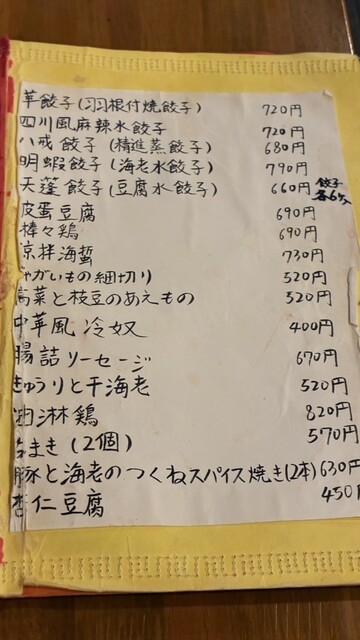 華餃子(羽根付焼餃子) 720円
四川風麻辣水餃子 720円
八戒餃子(精進蒸餃子) 680円
明蝦餃子(海老水餃子) 790円
天蓬餃子(豆腐水餃子) 660円
餃子
各6ケ
皮蛋豆腐 690円
棒々鶏 690円
涼拌海蜇 730円
じゃがいもの細切り 520円
高菜と枝豆のあえもの 520円
中華風冷奴 400円
腸詰ソーセージ 670円
きゅうりと干海老 520円
油淋鶏 820円
まき(2個) 570円
豚と海老のつくねスパイス焼き(2本) 630円
杏仁豆腐 450円